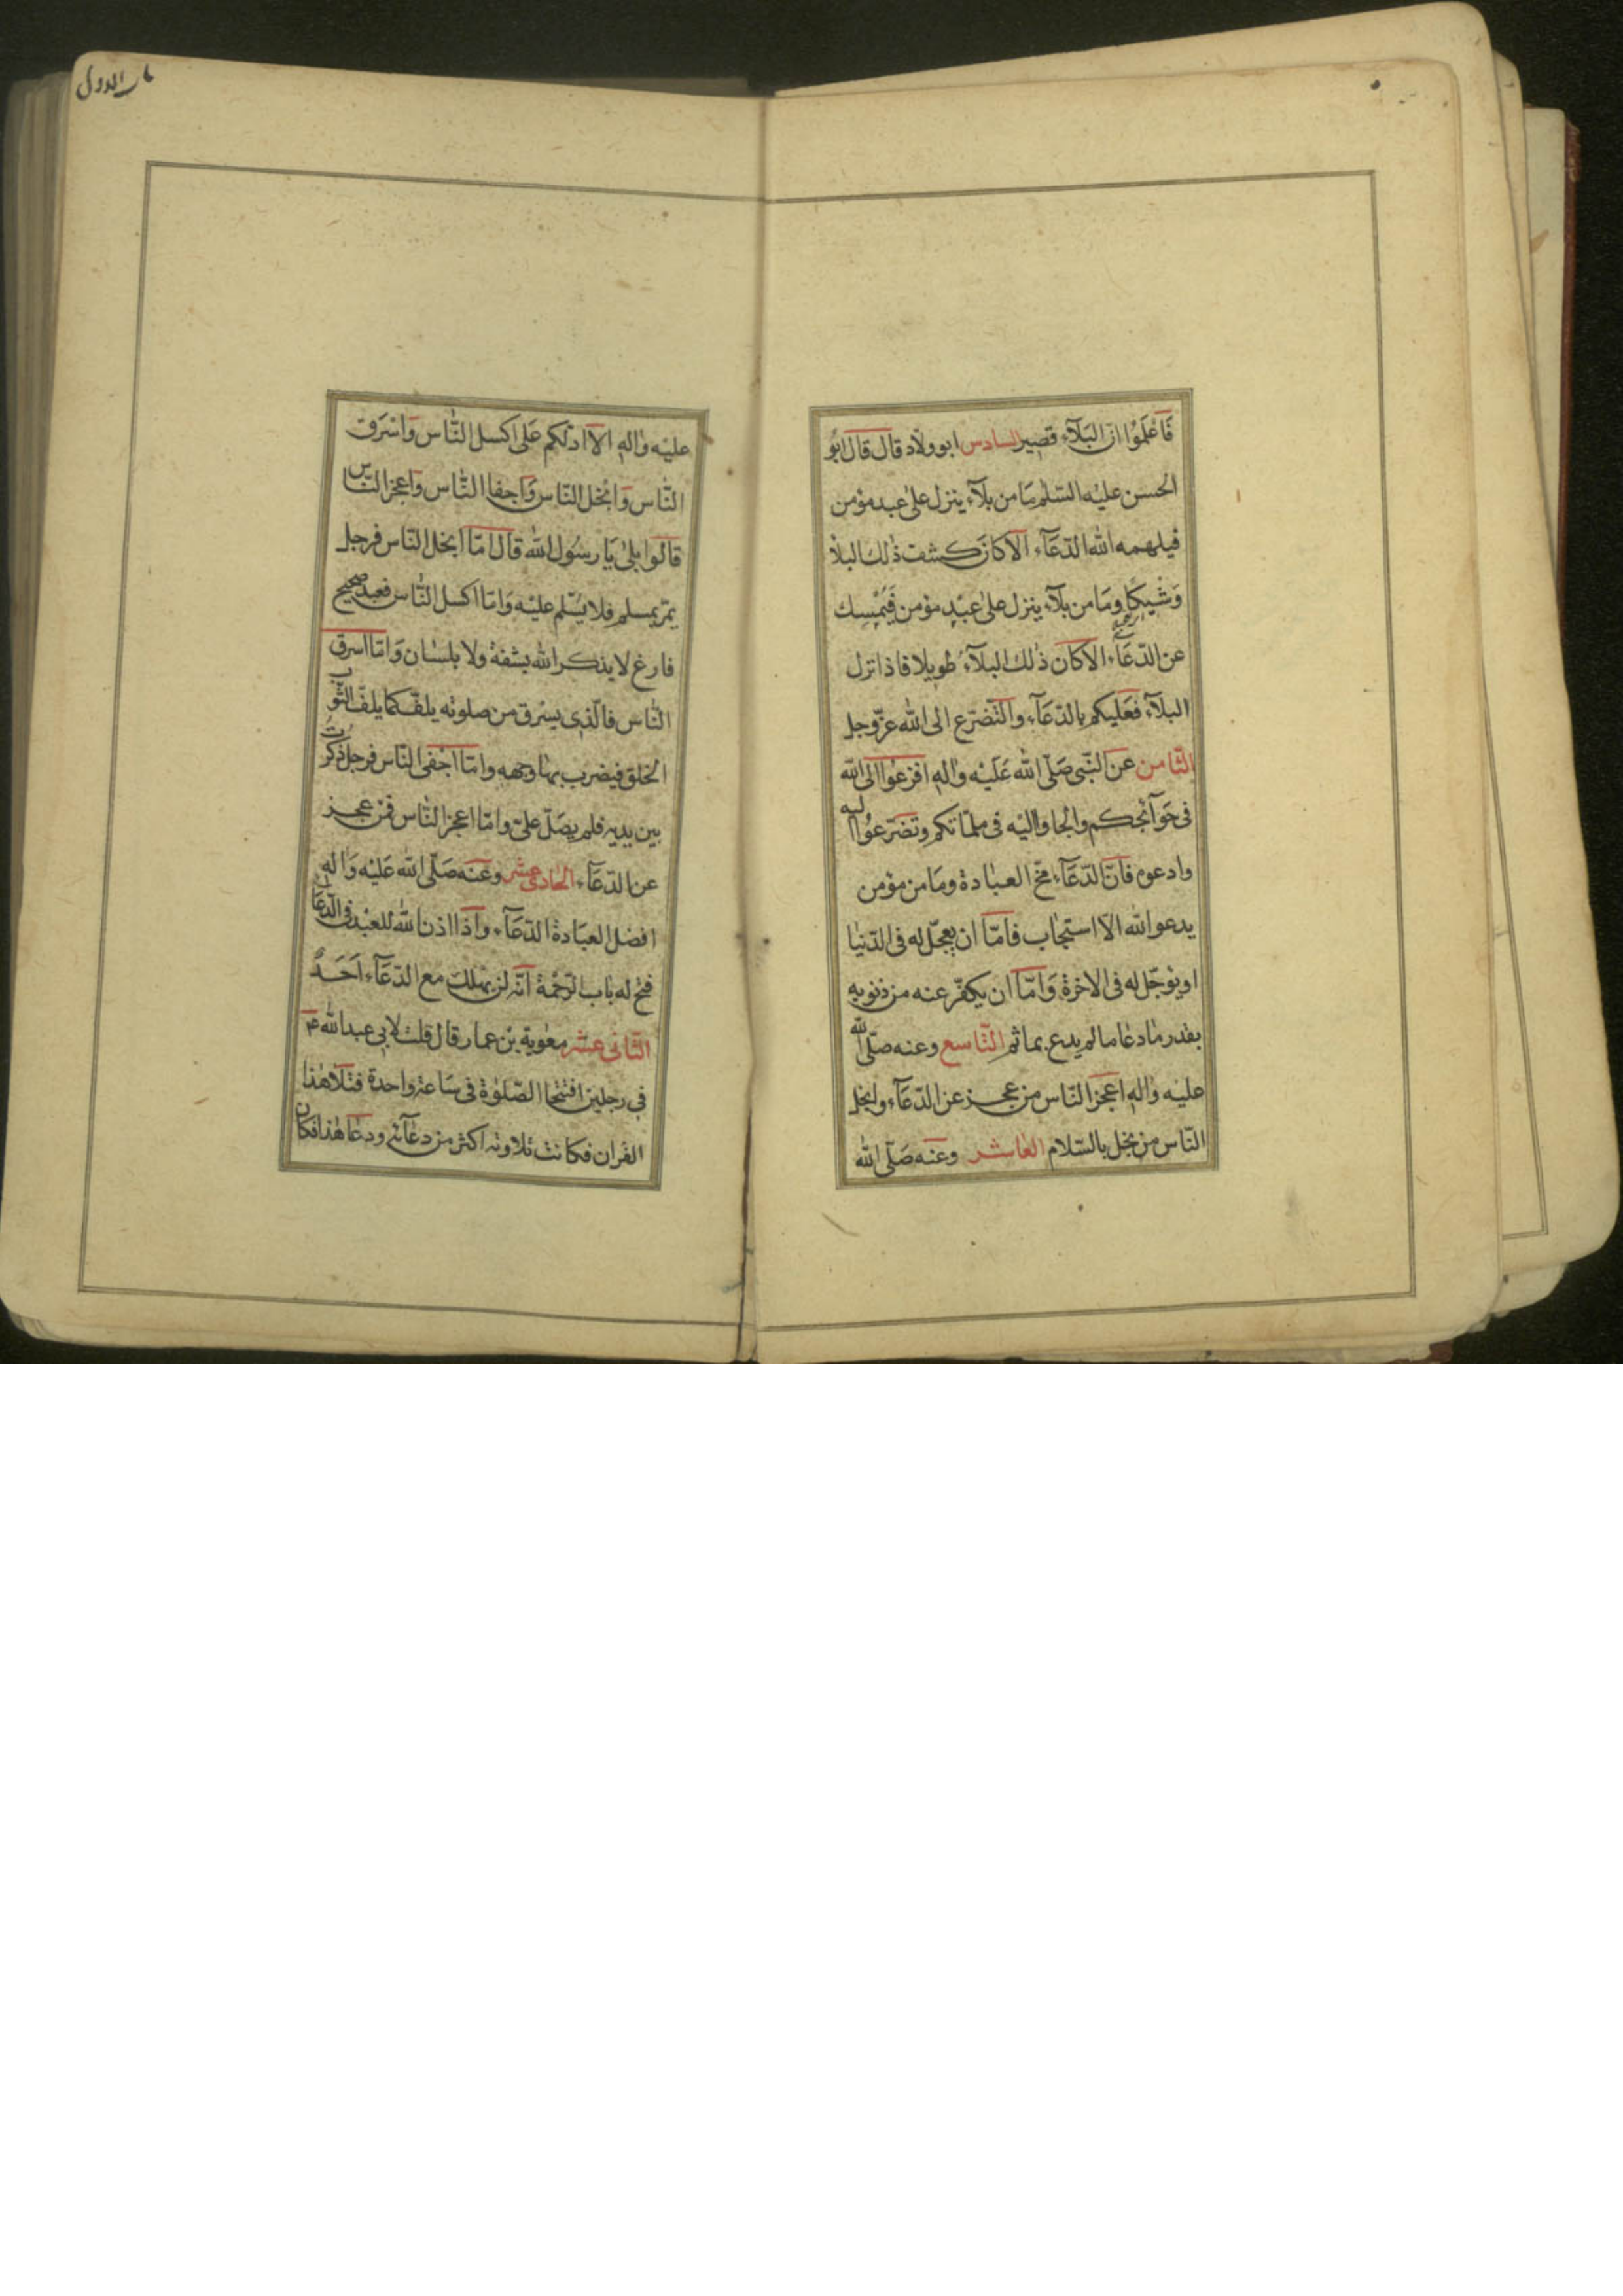 فَاعْلَمُوْا انّ البَلآء قصير السادس ابو ولاد قال قال ابُو
الحسن عليْه السّلٰم مَا من بلآء ينزل علىٰ عبد مؤمن
فيلهمه الله الدّعَآء الاّ كانَ كشف ذٰلك البلآ
وَشْيكًا وَمَا من بلآء ينزل علىٰ عبْدٍ مؤمن فَيُمْسِك
عن الدّعَآء الاّ كان ذٰلك البلآءُ طويلا فاذا نزل
البلآء فعَليكم بالدّعَآء والتّضرّع الى الله عزّوجلّ
الثّامن عن النّبى صَلّى الله عَلَيْه واٰلهِ افزعُوا الى الله
فى حَوَآئجكم والجاوا اليْه فى ملمّاتكم وتضَرّعوُا اليه
وادعوه فانّ الدّعَآء مخّ العبٰادة ومَا من مؤمن
يدعو الله الاّ استجٰاب فامّا ان يعجّل له فى الدّنيٰا
او يؤجّل له فى الاخرة وَامّا ان يكفّر عنه من ذنوبهِ
بقدر مٰا دعٰا ما لم يدع بماثم التّاسع وعنه صلّى الله
عليْه واٰلهِ اعجَز النّاس من عجز عن الدّعَآء وابخل
النّاس من بخل بالسّلام العٰاشر وعَنه صَلّى الله
عليْه واٰلهِ الاٰ ادلّكم عَلى اكسل النّاس وَاسْرَق
النّاس وَابْخل النّاس وَاجفا النّاس وَاعجز النّاس
قالوا بلىٰ يَا رسُول الله قال امّا ابخل النّاس فرجل
يمرّ بمسلم فلا يُسّلم عليْه وَامّا اكسل النّاس فعبد صحيح
فارغ لا يذكر الله بشفة ولا بلسٰان وَامّا اسرق
النّاس فالّذى يسْرق من صلوته يلفّ كما يلفّ الثّوب
الخلق فيضرب بهٰا وجهه وامّا اجْفى النّاس فرجل ذكرتُ
بين يديه فلم يصَلّ علىّ وامّا اعجز النّاس فمن عجز
عن الدّعَآء الحٰادى عشر وعَنه صَلّى الله عَليْه وَاٰلهِ
افضل العبَادة الدّعَآء واذا اذن الله للعبْد فى الدّعَآء
فتح له بٰاب الرّحْمة انّه لن يهلك مع الدّعَآء اَحَدٌ
الثّانى عشر معٰوية بْن عمار قال قلت لابى عبد الله ع
فى رجلين افتتحا الصّلوٰة فى سَاعة واحدة فتلا هٰذا
القران فكانت تلاوته اكثر من دعآئه ودعَا هٰذا فكان